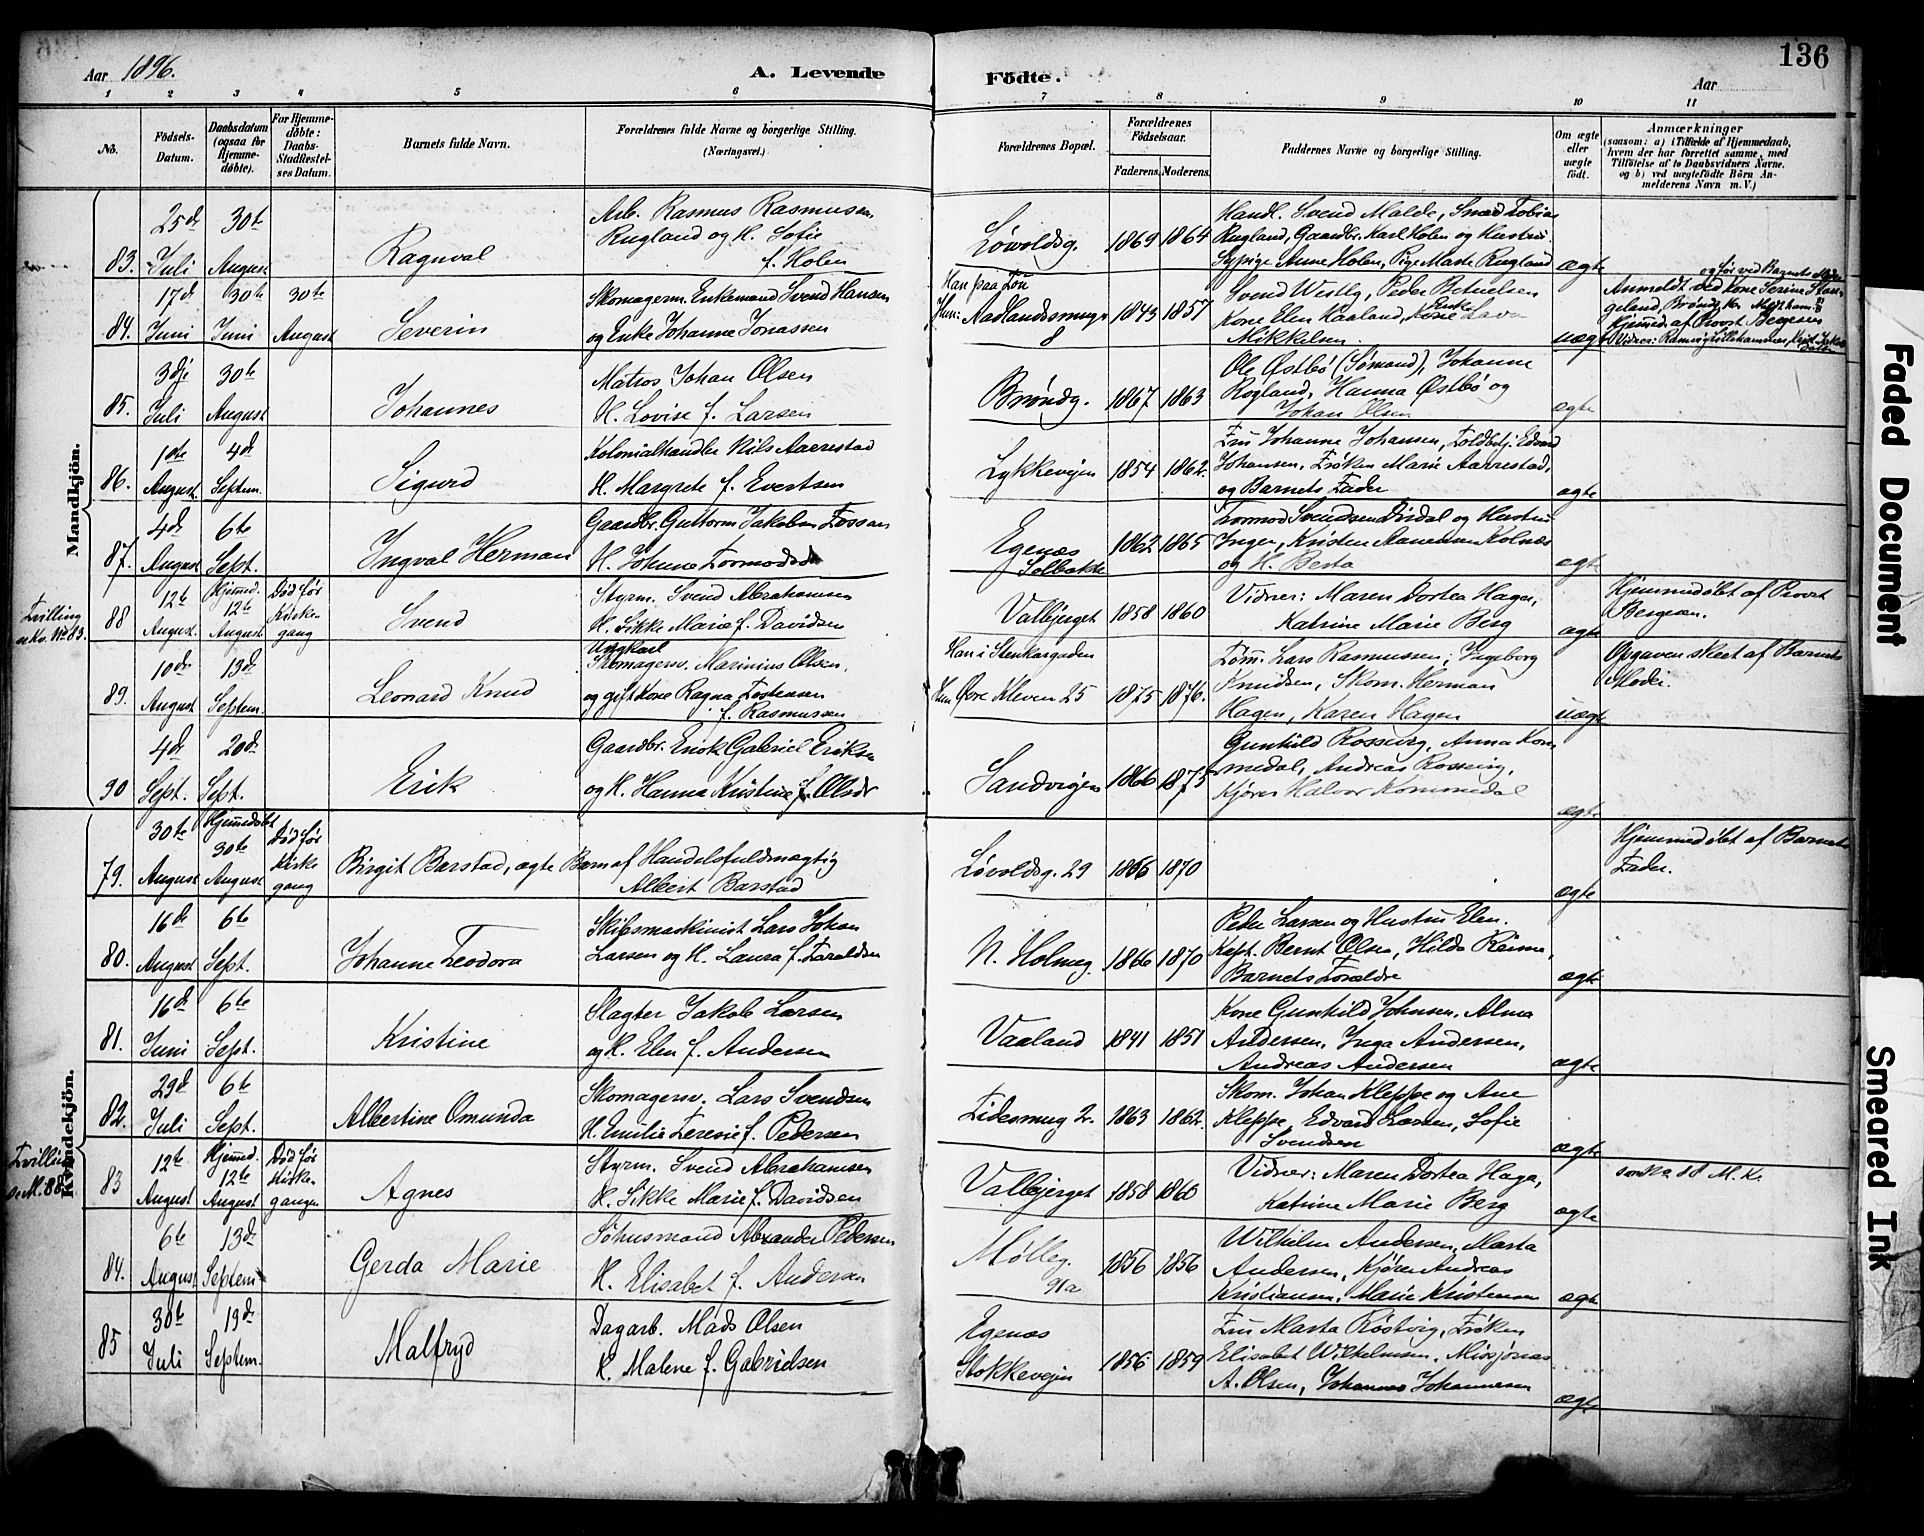 136
Aar 1896.
A. Levende
Födte.
Aar
1 2 3 4 5 6 7 8 9 10 11
No.
Födsels-
Datum.
Daabsdatum
(ogsaa for
Hjemme-
döbte).
For Hjemme-
döbte:
Daabs-
Stadfæstel-
ses Datum.
Barnets fulde Navn.
Forældrenes fulde Navne og borgerlige Stilling.
(Næringsvei.)
Forældrenes Bopæl.
Forældrenes
Födselsaar.
Faderens.
Moderens.
Faddernes Navne og borgerlige Stilling.
Om ægte
eller
uægte
födt.
Anmærkninger
(saasom: a) i Tilfælde af Hjemmedaab,
hvem der har forrettet samme, med
Tilföielse af to Daabsvidners Navne,
og b) ved uægtefödte Börn An-
melderens Navn m. V.)
Mandkjön.
83.
25de
Juli
30te
August
Ragnval
Arb. Rasmus Rasmusen
Rugland og H. Sofie
f. Holen
Løvoldsg.
1869 1864
Handl. Svend Malde, Smed Tobias
Rugland, Gaardbr. Karl Holen og Hustru
Sypige Anne Holen, Pige Marte Rugland
ægte
84.
17de
Juni
30te
Juni
30te
August
Severin
Skomagerm. Enkemand Svend Hansen
og Enke Johanne Jonassen
Han paa Tou
Hun: Aadlandssmug
8
1843 1857
Svend Westly, Peder Betuelsen
Kone Elen Haaland, Enke Lava
Mikkelsen
uægte
og før ved Barnets Moder
Anmeldt ved Kone Serine Stan-
geland, Brøndg.
Hjemmed. af Provst Bergesen
85.
3dje
Juli
30te
August
Johannes
Matros Johan Olsen
H. Lovise f. Larsen
Brøndg.
1867 1863
Ole Østbø (Sømand), Johanne
Rogland, Hanna Østbø og
Johan Olsen
ægte
86.
1ste
August
4de
Septem.
Sigurd
Kolonialhandler Nils Aarrestad
H. Margrete f. Evertsen
Lykkevejen
1854 1862.
Fru Johanne Johansen, Toldbetj. Edvard
Johansen, Frøken Marie Aarrestad,
og Barnets Fader
ægte
87.
4de
August
6te
Sept.
Ingval Herman
Gaardbr. Guttorm Jakobsen Fossan
H. Johanne Tormodsd
Egenæs
Solbakke
1862 1865
Tormod Svendsen Dirdal og Hustru
Inger, Kristen Kolnæs
og H. Berta
ægte
Tvilling
m Kv. No 83.
88
12te
August
Hjemmed.
12te
August
Død før
Kirke-
gang
Svend
Styrm. Svend Abrahamsen
H. Sikke Marie f. Davidsen
Valbjerget
1858 1860
Vidner: Maren Dortea Haga,
Katrine Marie Berg
ægte
Hjemmedøbt af Provst
Bergesen.
89.
10de
August
13de
Septem.
Leonard Knud
Ungkarl
Skomagersv. Marinius Olsen,
og gift Kone Ragna Tostensen
f. Rasmussen
Han i Stenkargaden
Hun Øvre Kleven 25
1875 1876.
Tøm. Lars Rasmussen, Ingeborg
Knudsen, Skom. Herman
Hagen, Karen Hagen
uægte
Opgaven skeet af Barnets
Moder.
90
4de
Sept.
20de
Sept.
Erik
Gaardbr. Erik Gabriel Eriksen
og H. Hanna Kristine f. Olsdr
Sandvigen
1866 1875
Gunhild Rossevig, Anna Kom
medal, Andreas Rossevig,
Kjører Halvor Kommedal
ægte
Kvindekjön.
79.
30te
August
Hjemmedøbt
30te
August
Død før
Kirke
gang
Birgit Barstad, ægte Barn af Handelsfuldmægtig
Albert Barstad
Løvoldsg. 29
1866 1870
ægte
Hjemmedøbt af Barnets
Fader.
80.
16de
August
6te
Sept.
Johanne Teodora
Skibsmaskinist Lars Johan
Larsen og H. Laura f. Taraldsen
N. Holmeg
1866 1870
Peder Larsen og Hustru Elen.
Kapt. Bernt Olsen, Hilda Reime,
Barnets Forældre
ægte
81.
16de
Juni
6te
Sept.
Kristine
Slagter Jakob Larsen
og H. Elen f. Andersen
Vaaland
1841 1851
Kone Gunhild Johnsen, Alma
Andersen, Inga Andersen,
Andreas Andersen
ægte
82.
29de
Juli
6te
Sept.
Albertine Omunda
Skomagersv. Lars Svendsen
H. Emilie Teresie f. Pedersen
Tidesmug 2.
1863 1862.
Skom. Johan Kleppe og Ane
Kleppe, Edvard Larsen, Sofie
Svendsen
ægte
Tvilling
m. M. 88.
83
12te
August
Hjemmed.
12te
August
Død før
Kirke-
gangen
Agnes
Styrm. Svend Abrahamsen
H. Sikke Marie f. Davidsen
Valbjerget
1858 1860
Vidner: Maren Dortea Haga,
Katrine Marie Berg
ægte
som No 88 M. K.
84.
6te
August
13de
Septem
Gerda Marie
Søhusmand Alexander Pedersen
H. Elisabet f. Andersen
Mølleg.
91a
1856 1856
Wilhelm Andersen, Marta
Andersen, Kjører Andreas
Kristiansen, Marie Kristensen
ægte
85
30te
Juli
19de
Septem.
Malfryd
Dagarb. Mads Olsen
H. Malene f. Gabrielsen
Egenæs
Stokkevejen
1856 1859
Fru Marta Röstvig, Frøken
Elisabet Wilhelmsen, Missjonær
A. Olsen, Johannes Johannesen
ægte
Faded Document
Smeared Ink